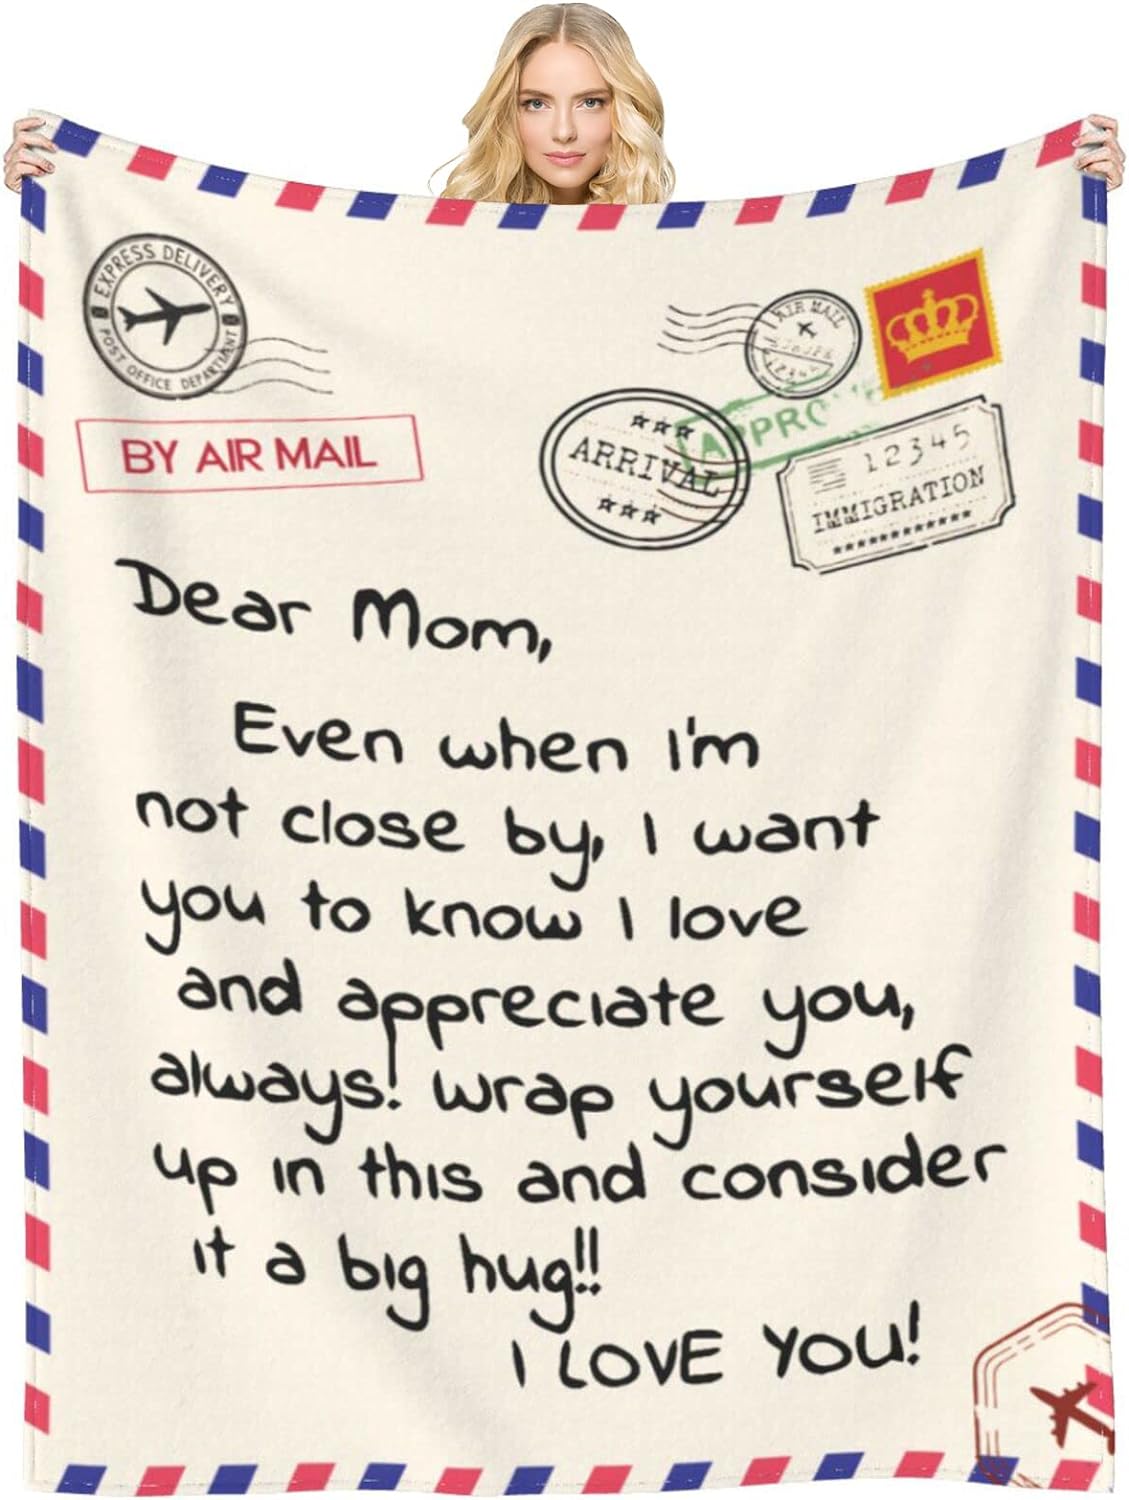 EXPRESS DELIVERY
POST OFFICE DEPARTMENT
BY AIR MAIL
AIR MAIL
12345
APPRO
ARRIVAL
12345
IMMIGRATION
Dear Mom,
Even when I'm
not close by, I want
you to know I love
and appreciate you,
always! wrap yourself
up in this and consider
it a big hug!!
I LOVE YOU!